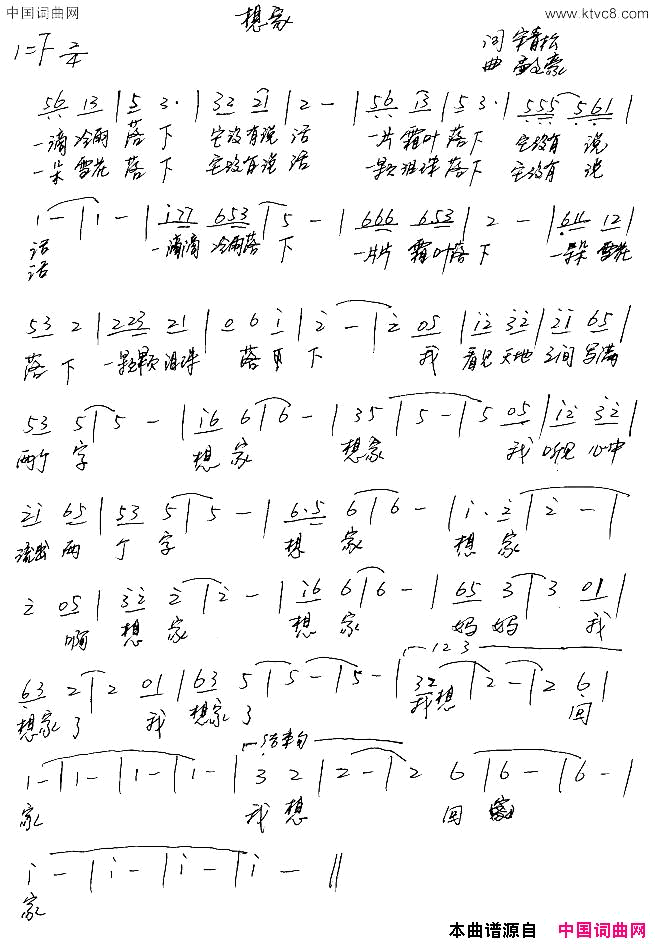 中国词曲网
www.ktvc8.com
想家
1=F 2/4
词
曲
56 13 | 5 3· | 32 21 | 2 - | 56 i3 | 5 3· | 555 561 |
一滴冷雨 落 下 它没有说 话 一片 霜叶 落 下 它没有 说
一朵 雪花 落 下 它没有说 话 一颗泪珠 落下 它没有 说
1 - | 1 - | i77 653 | 5 - | 666 653 | 2 - | 611 12 |
话 一滴滴 冷雨落 下 一片片 霜叶落 下 一朵朵 雪花
话
53 2 | 223 21 | 0 6 i | 2 - | 2 05 | i2 32 | 2i 65 |
落 下 一颗颗 泪珠 落 下 我 看见 天地 之间 写满
53 5 | 5 - | i6 6 | 6 - | 35 | 5 - | 5 05 | i2 32 |
两个 字 想 家 想家 我 听见 心中
2i 65 | 53 5 | 5 - | 6·5 6 | 6 - | i· 2 | 2 - |
流出 两 个 字 想 家 想 家
2 05 | 32 2 | 2 - | i6 6 | 6 - | 65 3 | 3 01 |
啊 想 家 想 家 妈 妈 我
123
63 2 | 2 01 | 63 5 | 5 - | 5 - | 32 | 2 - | 2 6 |
想家 了 我 想家 了 我想 回
结束句
1 - | 1 - | 1 - | 1 - | 3 2 | 2 - | 2 6 | 6 - | 6 - |
家 我 想 回
i - | i - | i - | i - ‖
家
本曲谱源自 中国词曲网